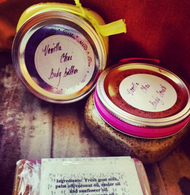 Vanilla
Chai
body butter
body
Ingredients: Fresh goat milk,
palm oil, coconut oil, castor oil
and sunflower oil.